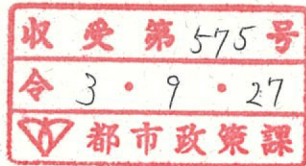 収受第575号
令3・9・27
都市政策課